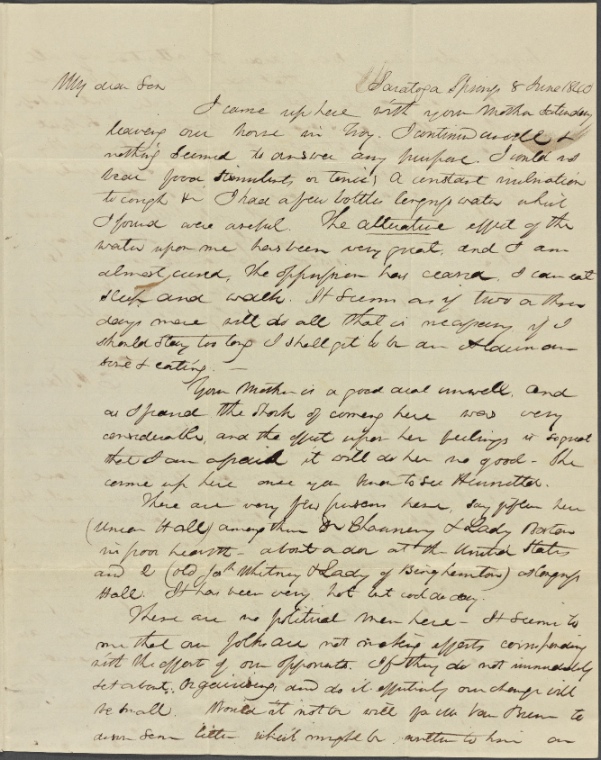 My dear Son Saratoga Springs 8 June 1840
I came up here with your Mother Saturday
leaving our horse in Troy. I continued unwell &
nothing seemed to answer any purpose. I could not
bear food stimulents or tonics, a constant inclination
to cough & I had a few bottles Congress water which
I found were useful. The alterative effect of the
water upon me has been very great, and I am
almost cured, The oppression has ceased, I can eat
sleep and walk. It seems as if two or three
days more will do all that is necessary if I
should stay too long I shall get to be an Alderman
&
eating. —
Your Mother is a good deal unwell, and
as I feared the shock of coming here was very
considerable, and the effect upon her feelings is so great
that I am afraid it will do her no good - She
came up here once you know to see Henrietta.
There are very few persons here, say fifteen here
(Union Hall) among them Dr & Lady
in poor health - about a doz at the United States
and 2 (old Jos^h Whitney & Lady of Binghamton) at Congress
Hall. It has been very hot but cool to day.
There are no political men here - It seems to
me that our folks are not making efforts corresponding
with the effort of our opponents. If they do not immediately
set about, Organising, and do it effectively our change will
be small. Would it not be well for Mr Van Buren to
some letter which might be written to him on